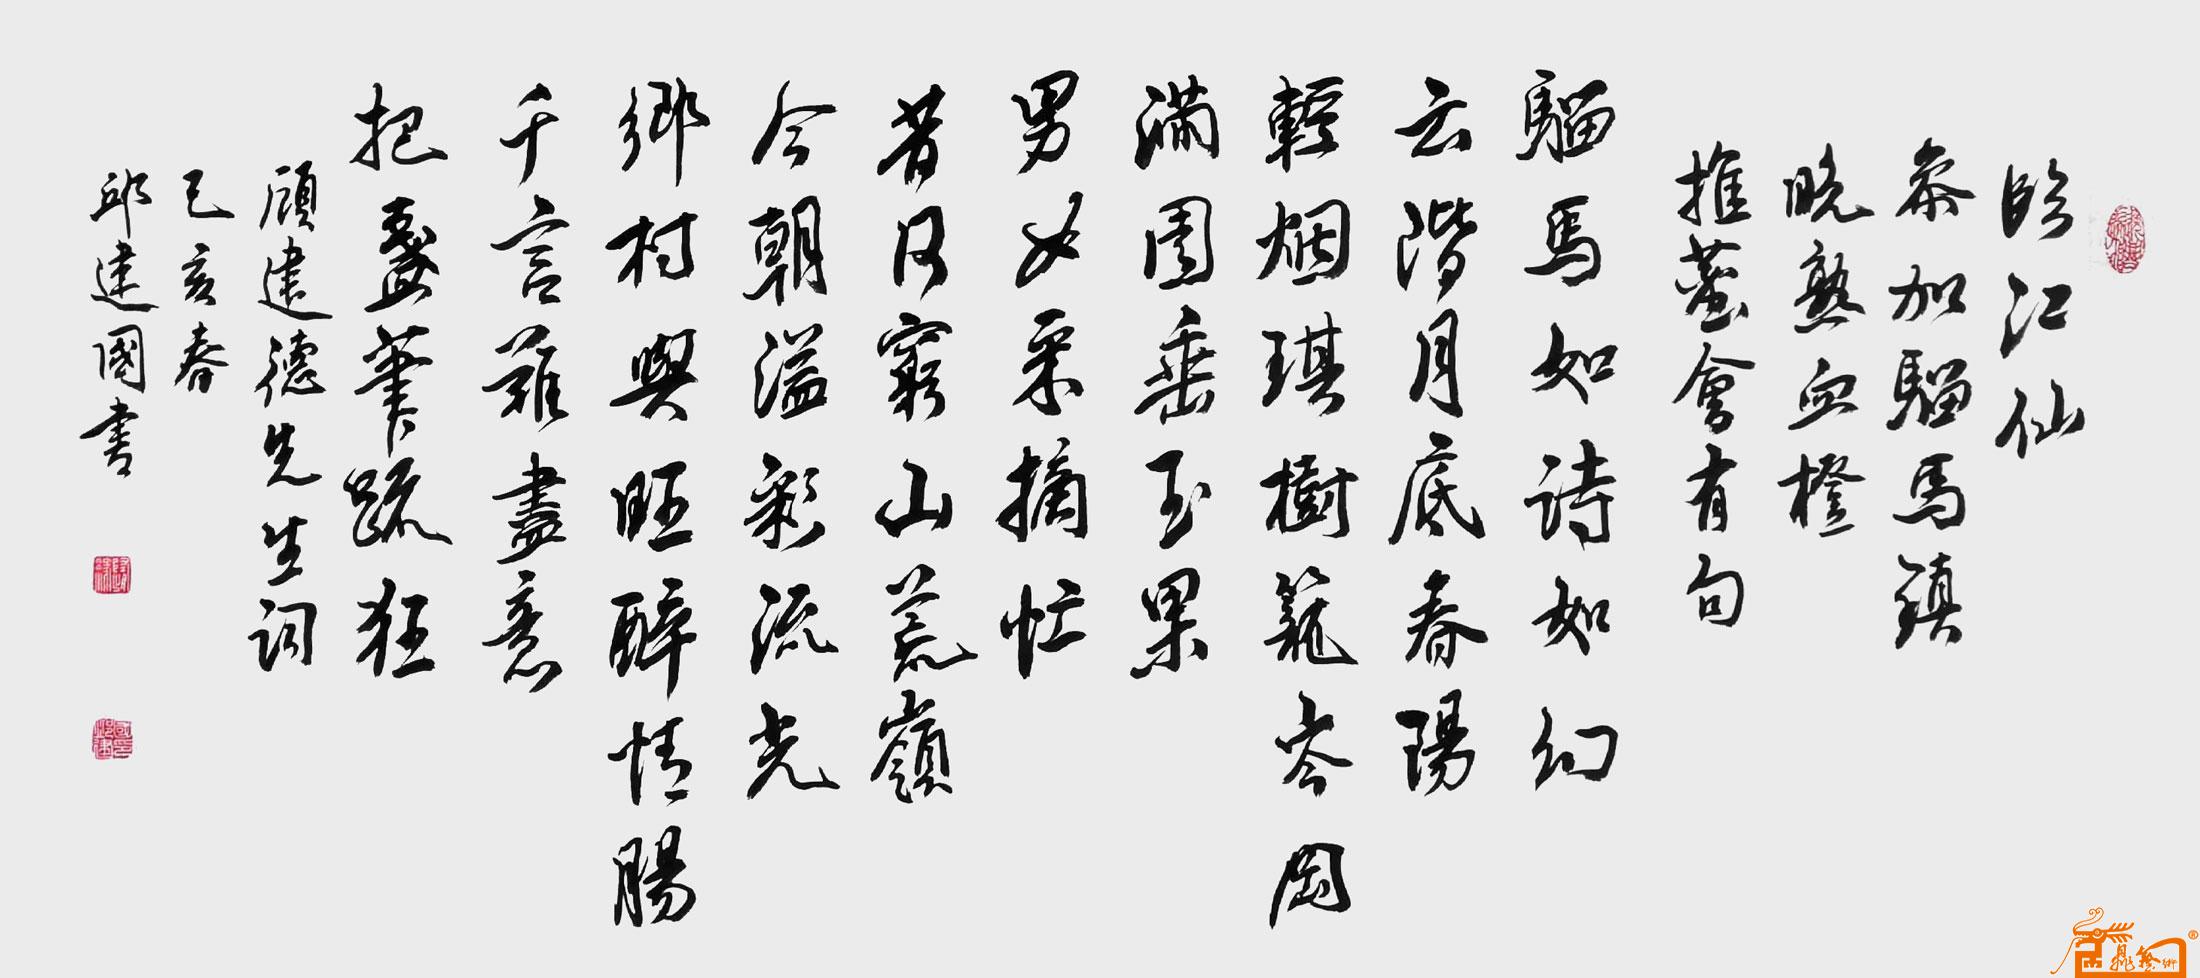 臨江仙
參加騮馬鎮
晚熟血橙
推薦會有句
騮馬如詩如幻
云階月底春陽
輕烟琪樹籠岑岡
滿園垂玉果
男女采摘忙
昔日窮山荒嶺
今朝溢彩流光
鄉村興旺醉情腸
千言難盡意
把盞筆疏狂
顧建德先生詞
己亥春
邱建國書